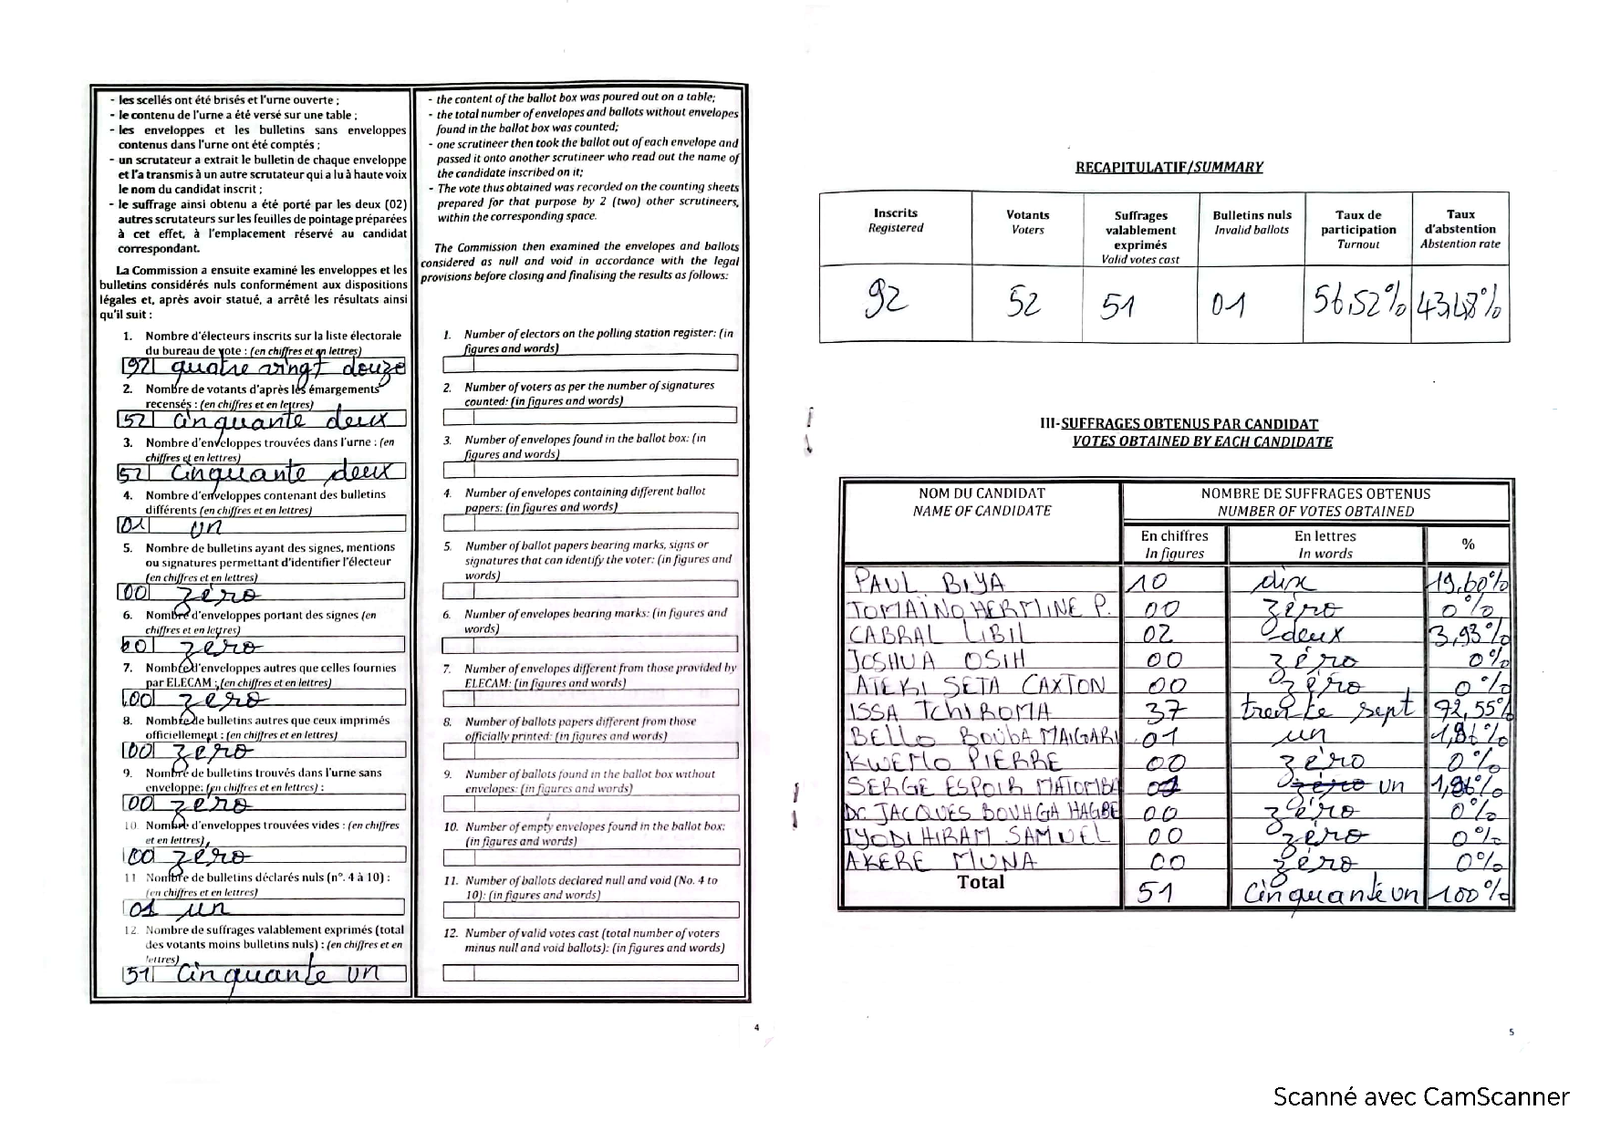 - les scellés ont été brisés et l'urne ouverte ;
- le contenu de l'urne a été versé sur une table ;
- les enveloppes et les bulletins sans enveloppes
contenus dans l'urne ont été comptés ;
- un scrutateur a extrait le bulletin de chaque enveloppe
et l'a transmis à un autre scrutateur qui a lu à haute voix
le nom du candidat inscrit ;
- le suffrage ainsi obtenu a été porté par les deux (02)
autres scrutateurs sur les feuilles de pointage préparées
à cet effet, à l'emplacement réservé au candidat
correspondant.
La Commission a ensuite examiné les enveloppes et les
bulletins considérés nuls conformément aux dispositions
légales et, après avoir statué, a arrêté les résultats ainsi
qu'il suit :
1. Nombre d'électeurs inscrits sur la liste électorale
du bureau de vote : (en chiffres et en lettres)
92 quatre vingt douze
2. Nombre de votants d'après les émargements
recensés : (en chiffres et en lettres)
52 cinquante deux
3. Nombre d'enveloppes trouvées dans l'urne : (en
chiffres et en lettres)
52 cinquante deux
4. Nombre d'enveloppes contenant des bulletins
différents (en chiffres et en lettres)
01 un
5. Nombre de bulletins ayant des signes, mentions
ou signatures permettant d'identifier l'électeur
(en chiffres et en lettres)
00 zéro
6. Nombre d'enveloppes portant des signes (en
chiffres et en lettres)
00 zéro
7. Nombre d'enveloppes autres que celles fournies
par ELECAM : (en chiffres et en lettres)
00 zéro
8. Nombre de bulletins autres que ceux imprimés
officiellement : (en chiffres et en lettres)
00 zéro
9. Nombre de bulletins trouvés dans l'urne sans
enveloppe: (en chiffres et en lettres) :
00 zéro
10. Nombre d'enveloppes trouvées vides : (en chiffres
et en lettres)
00 zéro
11 Nombre de bulletins déclarés nuls (n°. 4 à 10) :
(en chiffres et en lettres)
01 un
12. Nombre de suffrages valablement exprimés (total
des votants moins bulletins nuls) : (en chiffres et en
lettres)
51 Cinquante un
- the content of the ballot box was poured out on a table;
- the total number of envelopes and ballots without envelopes
found in the ballot box was counted;
- one scrutineer then took the ballot out of each envelope and
passed it onto another scrutineer who read out the name of
the candidate inscribed on it;
- The vote thus obtained was recorded on the counting sheets
prepared for that purpose by 2 (two) other scrutineers,
within the corresponding space.
The Commission then examined the envelopes and ballots
considered as null and void in accordance with the legal
provisions before closing and finalising the results as follows:
1. Number of electors on the polling station register: (in
figures and words)
2. Number of voters as per the number of signatures
counted: (in figures and words)
3. Number of envelopes found in the ballot box: (in
figures and words)
4. Number of envelopes containing different ballot
papers: (in figures and words)
5. Number of ballot papers bearing marks, signs or
signatures that can identify the voter: (in figures and
words)
6. Number of envelopes bearing marks: (in figures and
words)
7. Number of envelopes different from those provided by
ELECAM: (in figures and words)
8. Number of ballots papers different from those
officially printed: (in figures and words)
9. Number of ballots found in the ballot box without
envelopes: (in figures and words)
10. Number of empty envelopes found in the ballot box:
(in figures and words)
11. Number of ballots declared null and void (No. 4 to
10): (in figures and words)
12. Number of valid votes cast (total number of voters
minus null and void ballots): (in figures and words)
4
RECAPITULATIF/SUMMARY
Inscrits Registered
Votants Voters
Suffrages valablement exprimés Valid votes cast
Bulletins nuls Invalid ballots
Taux de participation Turnout
Taux d'abstention Abstention rate
92 52 51 01 56,52% 43,48%
III-SUFFRAGES OBTENUS PAR CANDIDAT
VOTES OBTAINED BY EACH CANDIDATE
NOM DU CANDIDAT NOMBRE DE SUFFRAGES OBTENUS
NAME OF CANDIDATE NUMBER OF VOTES OBTAINED
En chiffres En lettres %
In figures In words
PAUL BIYA 10 dix 19,60%
TOMAÏNO HERMINE P. 00 zéro 0%
CABRAL LIBII 02 deux 3,93%
JOSHUA OSIH 00 zéro 0%
ATEKI SETA CAXTON 00 zéro 0%
ISSA TCHIROMA 37 trente sept 72,55%
BELLO BOUBA MAIGARI 01 un 1,96%
KWEMO PIERRE 00 zéro 0%
SERGE ESPOIR MATOMBA 01 zéro un 1,96%
Dr JACQUES BOUHGA HAGBE 00 zéro 0%
IYODI HIRAM SAMUEL 00 zéro 0%
AKERE MUNA 00 zéro 0%
Total 51 Cinquante un 100%
5
Scanné avec CamScanner